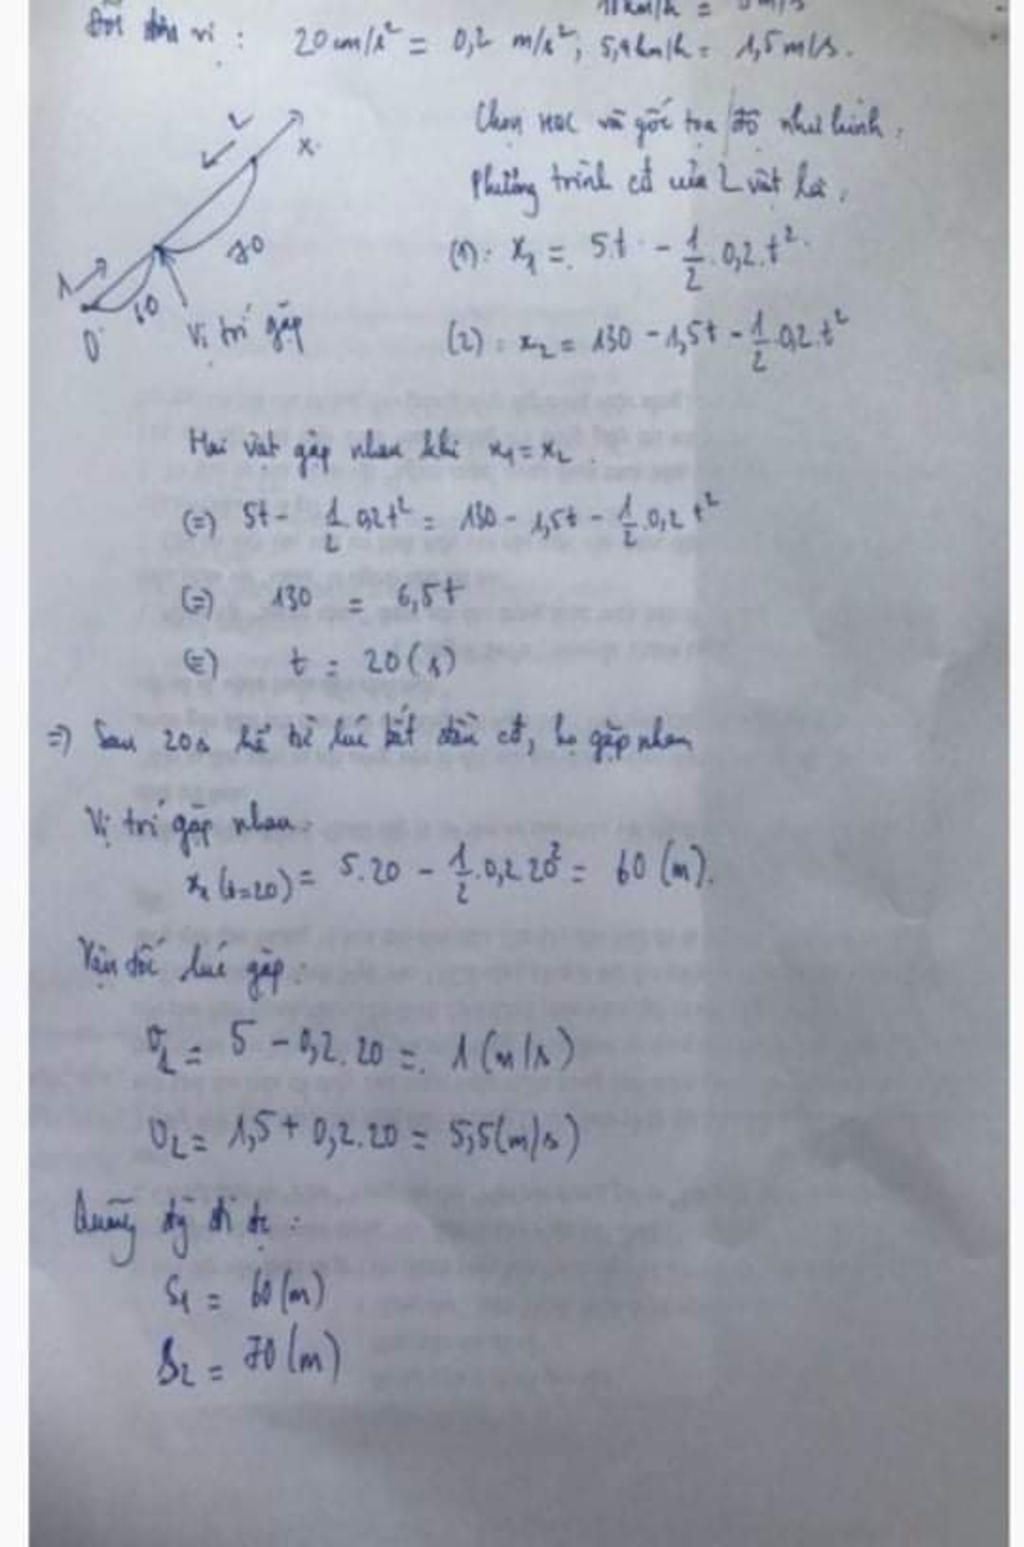 Đổi đơn vị : 18 km/h = 5 m/s
20 cm/s² = 0,2 m/s²; 5,4 km/h = 1,5 m/s.
Chọn HQC và gốc tọa độ như hình.
Phương trình cđ của 2 vật là.
(1): x₁ = 5.t - 1/2 .0,2.t²
(2): x₂ = 130 - 1,5t - 1/2 .0,2.t²
2
x
70
1
60
0
Vị trí gặp
Hai vật gặp nhau khi x₁ = x₂.
(=) 5t - 1/2 .0,2t² = 130 - 1,5t - 1/2 .0,2 t²
(=) 130 = 6,5t
(=) t = 20 (s)
=) Sau 20s kể từ lúc bắt đầu cđ, họ gặp nhau
Vị trí gặp nhau:
(t=20) = 5.20 - 1/2 .0,2.20² = 60 (m).
Vận tốc lúc gặp:
v₁ = 5 - 0,2.20 = 1 (m/s)
v₂ = 1,5 + 0,2.20 = 5,5 (m/s)
Quãng đg đi đc :
S₁ = 60 (m)
S₂ = 70 (m)